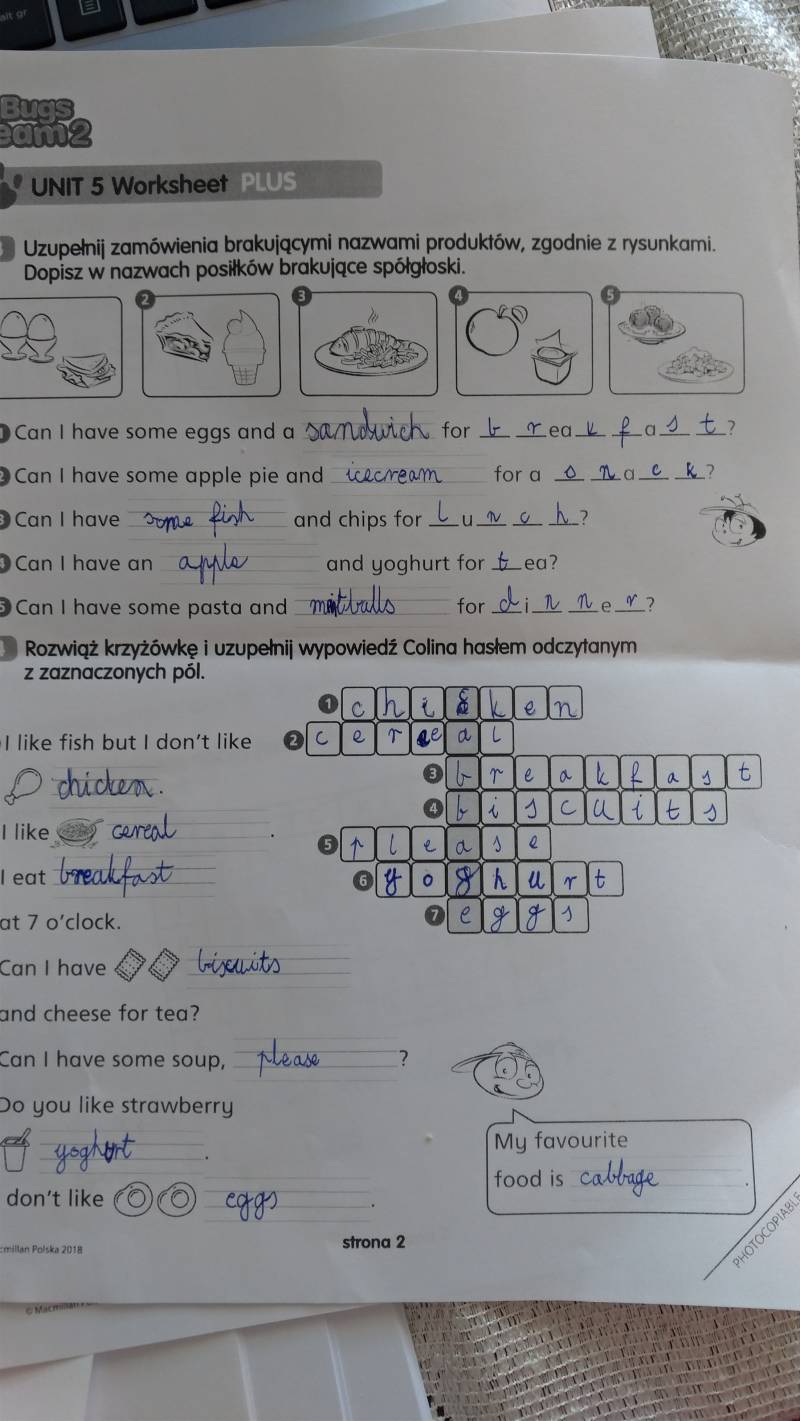 alt gr
Bugs
eam 2
UNIT 5 Worksheet PLUS
Uzupełnij zamówienia brakującymi nazwami produktów, zgodnie z rysunkami.
Dopisz w nazwach posiłków brakujące spółgłoski.
2 3 4 5
1 Can I have some eggs and a sandwich for breakfast?
2 Can I have some apple pie and icecream for a snack?
3 Can I have some fish and chips for lunch?
Can I have an apple and yoghurt for tea?
5 Can I have some pasta and meatballs for dinner?
Rozwiąż krzyżówkę i uzupełnij wypowiedź Colina hasłem odczytanym
z zaznaczonych pól.
1 chicken
I like fish but I don't like 2 cereal
3 breakfast
chicken.
4 biscuits
I like cereal.
5 please
I eat breakfast
6 yoghurt
7 eggs
at 7 o'clock.
Can I have biscuits
and cheese for tea?
Can I have some soup, please?
Do you like strawberry
My favourite
yoghurt.
food is cabbage.
don't like eggs.
cmillan Polska 2018
strona 2
PHOTOCOPIABLE
© Macmillan